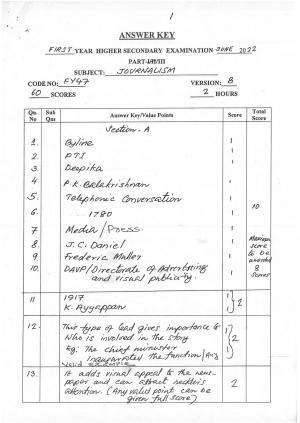 1
ANSWER KEY
FIRST YEAR HIGHER SECONDARY EXAMINATION JUNE 2022
PART-I/II/III
SUBJECT: JOURNALISM
CODE NO: FY47 VERSION: B
60 SCORES 2 HOURS
Qn. No Sub Qns Answer Key/Value Points Score Total Score
Section - A
1. Byline 1
2. PTI 1
3. Deepika 1
4 P.K. Balakrishnan 1
5. Telephonic Conversation 1
6. 1780 1 10
7 Media/Press. 1
8. J.C. Daniel 1 Maximum score to be awarded 8 scores
9. Frederic Muller 1
10. DAVP/Directorate of Advertising and visual publicity 1
11 1917 1
K. Ayyappan 1 2
12. This type of lead gives importance to
Who is involved in the story 1
Eg: The chief minister 2
inaugurated the function/Any 1
valid example
13. It adds visual appeal to the news-
paper and can attract reader's 2
attention. (Any valid point can be
given full score)